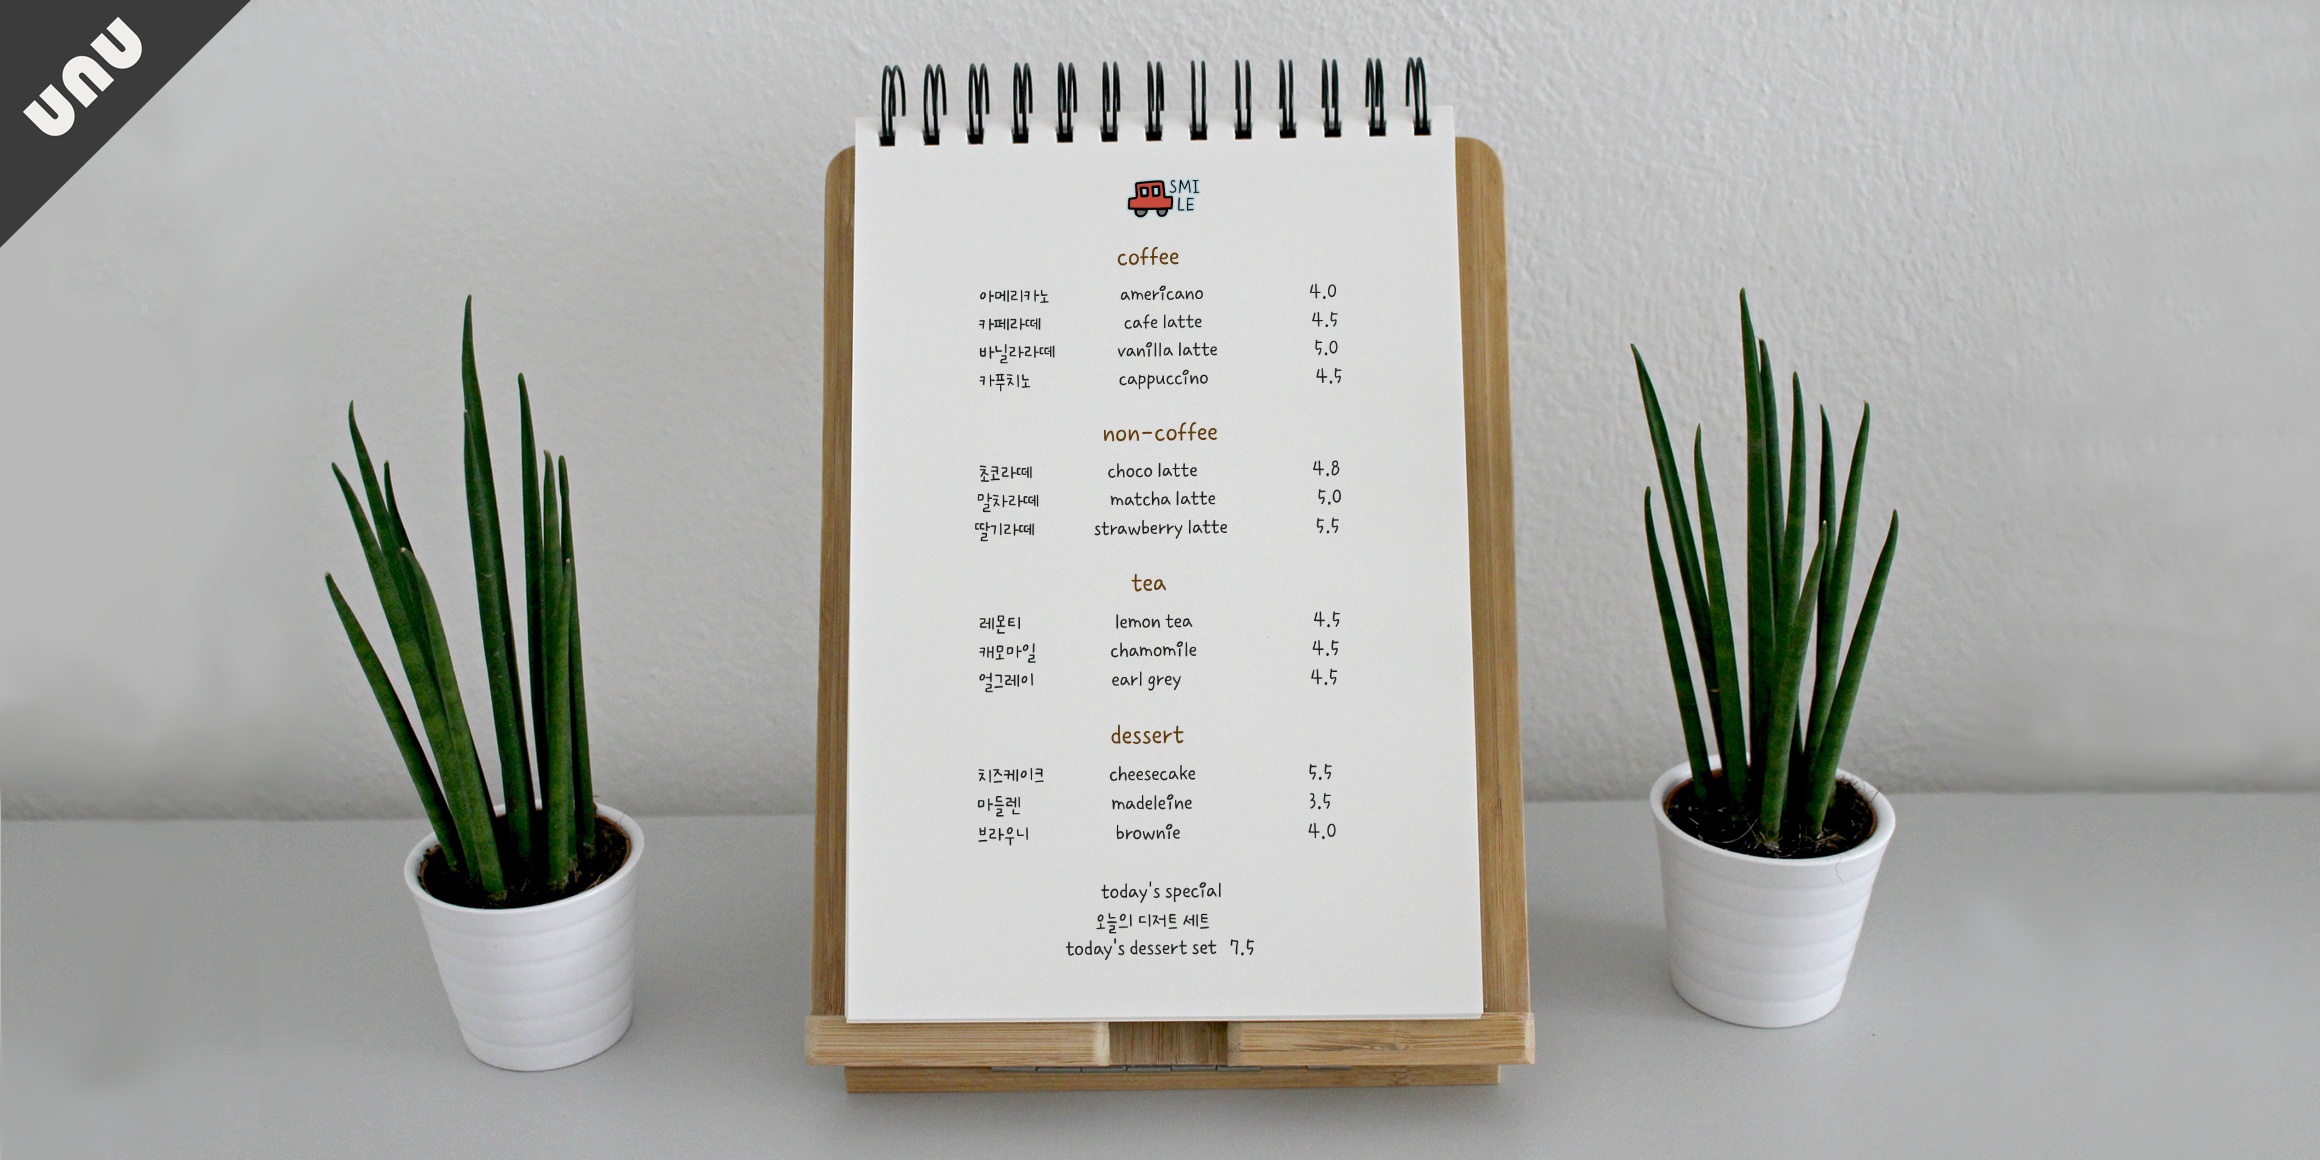 UNU
SMI
LE
coffee
아메리카노 americano 4.0
카페라떼 cafe latte 4.5
바닐라라떼 vanilla latte 5.0
카푸치노 cappuccino 4.5
non-coffee
초코라떼 choco latte 4.8
말차라떼 matcha latte 5.0
딸기라떼 strawberry latte 5.5
tea
레몬티 lemon tea 4.5
캐모마일 chamomile 4.5
얼그레이 earl grey 4.5
dessert
치즈케이크 cheesecake 5.5
마들렌 madeleine 3.5
브라우니 brownie 4.0
today's special
오늘의 디저트 세트
today's dessert set 7.5